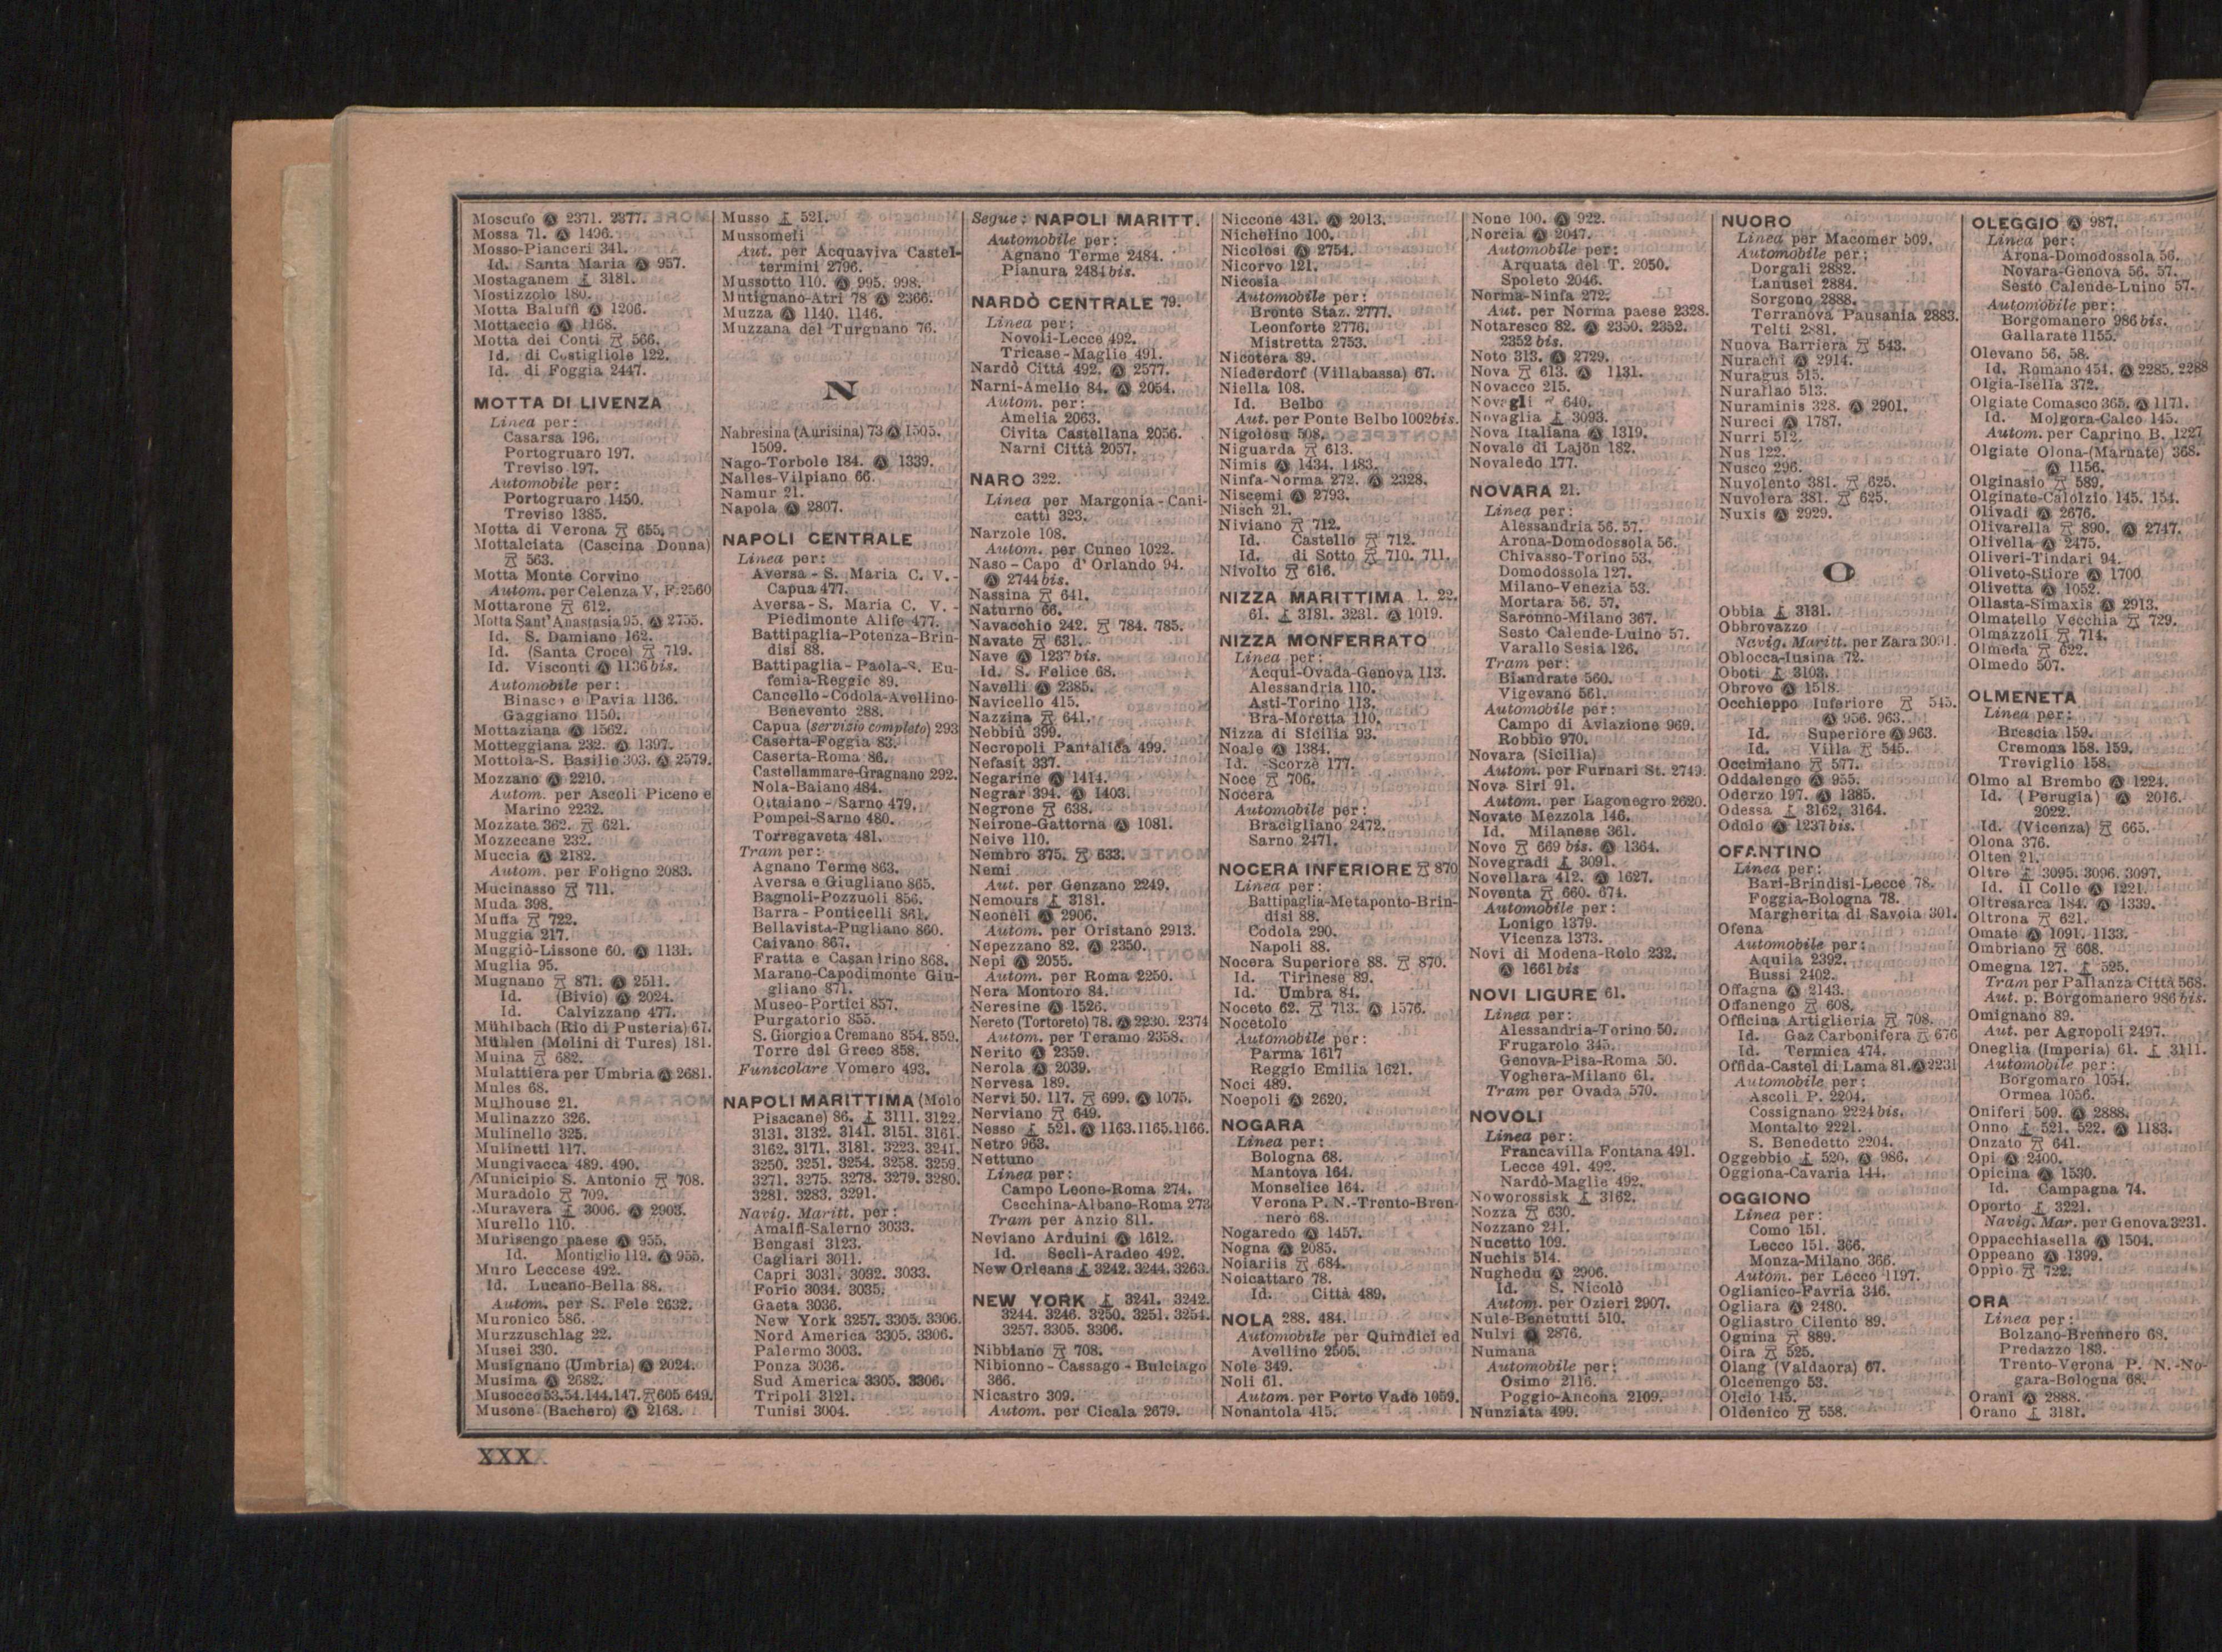 Moscufo Ⓐ 2371. 2377.
Mossa 71. Ⓐ 1496.
Mosso-Pianceri 341.
Id. Santa Maria Ⓐ 957.
Mostaganem 3181.
Mostizzolo 180.
Motta Baluffi Ⓐ 1206.
Mottaccio Ⓐ 1168.
Motta dei Conti 566.
Id. di Costigliole 122.
Id. di Foggia 2447.
MOTTA DI LIVENZA
Linea per:
Casarsa 196.
Portogruaro 197.
Treviso 197.
Automobile per:
Portogruaro 1450.
Treviso 1385.
Motta di Verona 655.
Mottalciata (Cascina Donna)
563.
Motta Monte Corvino
Autom. per Celenza V. F. 2560
Mottarone 612.
Motta Sant'Anastasia 95. Ⓐ 2755.
Id. S. Damiano 162.
Id. (Santa Croce) 719.
Id. Visconti Ⓐ 1136 bis.
Automobile per:
Binasco e Pavia 1136.
Gaggiano 1150.
Mottaziana Ⓐ 1562.
Motteggiana 232. Ⓐ 1397.
Mottola-S. Basilio 303. Ⓐ 2579.
Mozzano Ⓐ 2210.
Autom. per Ascoli Piceno e
Marino 2232.
Mozzate 362. 621.
Mozzecane 232.
Muccia Ⓐ 2182.
Autom. per Foligno 2083.
Mucinasso 711.
Muda 398.
Muffa 722.
Muggia 217.
Muggiò-Lissone 60. Ⓐ 1131.
Muglia 95.
Mugnano 871. Ⓐ 2511.
Id. (Bivio) Ⓐ 2024.
Id. Calvizzano 477.
Mühlbach (Rio di Pusteria) 67.
Mühlen (Molini di Tures) 181.
Muina 682.
Mulattiera per Umbria Ⓐ 2681.
Mules 68.
Mulhouse 21.
Mulinazzo 326.
Mulinello 325.
Mulinetti 117.
Mungivacca 489. 490.
Municipio S. Antonio 708.
Muradolo 709.
Muravera 3006. Ⓐ 2903.
Murello 110.
Murisengo paese Ⓐ 955.
Id. Montiglio 119. Ⓐ 955.
Muro Leccese 492.
Id. Lucano-Bella 88.
Autom. per S. Fele 2632.
Muronico 586.
Murzzuschlag 22.
Musei 330.
Musignano (Umbria) Ⓐ 2024.
Musima Ⓐ 2682.
Musocco 53. 54. 144. 147. 605 649.
Musone (Bachero) Ⓐ 2168.
Musso 521.
Mussomeli
Aut. per Acquaviva Castel-
termini 2796.
Mussotto 110. Ⓐ 995. 998.
Mutignano-Atri 78 Ⓐ 2366.
Muzza Ⓐ 1140. 1146.
Muzzana del Turgnano 76.
N
Nabresina (Aurisina) 73 Ⓐ 1505.
1509.
Nago-Torbole 184. Ⓐ 1339.
Nalles-Vilpiano 66.
Namur 21.
Napola Ⓐ 2807.
NAPOLI CENTRALE
Linea per:
Aversa - S. Maria C. V. -
Capua 477.
Aversa - S. Maria C. V. -
Piedimonte Alife 477.
Battipaglia-Potenza-Brin-
disi 88.
Battipaglia - Paola-S. Eu-
femia-Reggio 89.
Cancello - Codola-Avellino-
Benevento 288.
Capua (servizio completo) 293
Caserta-Foggia 83.
Caserta-Roma 86.
Castellammare-Gragnano 292.
Nola-Baiano 484.
Ottaiano - Sarno 479.
Pompei-Sarno 480.
Torregaveta 481.
Tram per:
Agnano Terme 863.
Aversa e Giugliano 865.
Bagnoli-Pozzuoli 856.
Barra - Ponticelli 861.
Bellavista-Pugliano 860.
Caivano 867.
Fratta e Casandrino 868.
Marano-Capodimonte Giu-
gliano 871.
Museo-Portici 857.
Purgatorio 855.
S. Giorgio a Cremano 854. 859.
Torre del Greco 858.
Funicolare Vomero 493.
NAPOLI MARITTIMA (Molo
Pisacane) 86. 3111. 3122.
3131. 3132. 3141. 3151. 3161.
3162. 3171. 3181. 3223. 3241.
3250. 3251. 3254. 3258. 3259.
3271. 3275. 3278. 3279. 3280.
3281. 3283. 3291.
Navig. Maritt. per:
Amalfi-Salerno 3033.
Bengasi 3123.
Cagliari 3011.
Capri 3031. 3032. 3033.
Forio 3034. 3035.
Gaeta 3036.
New York 3257. 3305. 3306.
Nord America 3305. 3306.
Palermo 3003.
Ponza 3036.
Sud America 3305. 3306.
Tripoli 3121.
Tunisi 3004.
Segue: NAPOLI MARITT.
Automobile per:
Agnano Terme 2484.
Pianura 2484 bis.
NARDÒ CENTRALE 79.
Linea per:
Novoli-Lecce 492.
Tricase - Maglie 491.
Nardò Città 492. Ⓐ 2577.
Narni-Amelio 84. Ⓐ 2054.
Autom. per:
Amelia 2063.
Civita Castellana 2056.
Narni Città 2057.
NARO 322.
Linea per Margonia - Cani-
cattì 323.
Narzole 108.
Autom. per Cuneo 1022.
Naso - Capo d'Orlando 94.
Ⓐ 2744 bis.
Nassina 641.
Naturno 66.
Navacchio 242. 784. 785.
Navate 631.
Nave Ⓐ 1237 bis.
Id. S. Felice 68.
Navelli Ⓐ 2385.
Navicello 415.
Nazzina 641.
Nebbiù 399.
Necropoli Pantalica 499.
Nefasit 337.
Negarine Ⓐ 1414.
Negrar 394. Ⓐ 1403.
Negrone 638.
Neirone-Gattorna Ⓐ 1081.
Neive 110.
Nembro 375. 633.
Nemi
Aut. per Genzano 2249.
Nemours 3181.
Neoneli Ⓐ 2906.
Autom. per Oristano 2913.
Nepezzano 82. Ⓐ 2350.
Nepi Ⓐ 2055.
Autom. per Roma 2250.
Nera Montoro 84.
Neresine Ⓐ 1526.
Nereto (Tortoreto) 78. Ⓐ 2230. 2374
Autom. per Teramo 2358.
Nerito Ⓐ 2359.
Nerola Ⓐ 2039.
Nervesa 189.
Nervi 50. 117. 699. Ⓐ 1075.
Nerviano 649.
Nesso 521. Ⓐ 1163. 1165. 1166.
Netro 963.
Nettuno
Linea per:
Campo Leone-Roma 274.
Cecchina-Albano-Roma 273
Tram per Anzio 811.
Neviano Arduini Ⓐ 1612.
Id. Seclì-Aradeo 492.
New Orleans 3242. 3244. 3263.
NEW YORK 3241. 3242.
3244. 3246. 3250. 3251. 3254.
3257. 3305. 3306.
Nibbiano 708.
Nibionno - Cassago - Bulciago
366.
Nicastro 309.
Autom. per Cicala 2679.
Niccone 431. Ⓐ 2013.
Nichelino 100.
Nicolosi Ⓐ 2754.
Nicorvo 121.
Nicosia
Automobile per:
Bronte Staz. 2777.
Leonforte 2776.
Mistretta 2753.
Nicotera 89.
Niederdorf (Villabassa) 67.
Niella 108.
Id. Belbo
Aut. per Ponte Belbo 1002 bis.
Nigolosu 508.
Niguarda 613.
Nimis Ⓐ 1434. 1483.
Ninfa-Norma 272. Ⓐ 2328.
Niscemi Ⓐ 2793.
Nisch 21.
Niviano 712.
Id. Castello 712.
Id. di Sotto 710. 711.
Nivolto 616.
NIZZA MARITTIMA l. 22.
61. 3181. 3231. Ⓐ 1019.
NIZZA MONFERRATO
Linea per:
Acqui-Ovada-Genova 113.
Alessandria 110.
Asti-Torino 113.
Bra-Moretta 110.
Nizza di Sicilia 93.
Noale Ⓐ 1384.
Id. -Scorzè 177.
Noce 706.
Nocera
Automobile per:
Bracigliano 2472.
Sarno 2471.
NOCERA INFERIORE 870
Linea per:
Battipaglia-Metaponto-Brin-
disi 88.
Codola 290.
Napoli 88.
Nocera Superiore 88. 870.
Id. Tirinese 89.
Id. Umbra 84.
Noceto 62. 713. Ⓐ 1576.
Nocetolo
Automobile per:
Parma 1617
Reggio Emilia 1621.
Noci 489.
Noepoli Ⓐ 2620.
NOGARA
Linea per:
Bologna 68.
Mantova 164.
Monselice 164.
Verona P. N.-Trento-Bren-
nero 68.
Nogaredo Ⓐ 1457.
Nogna Ⓐ 2085.
Noiariis 684.
Noicattaro 78.
Id. Città 489.
NOLA 288. 484.
Automobile per Quindici ed
Avellino 2505.
Nole 349.
Noli 61.
Autom. per Porto Vado 1059.
Nonantola 415.
None 100. Ⓐ 922.
Norcia Ⓐ 2047.
Automobile per:
Arquata del T. 2050.
Spoleto 2046.
Norma-Ninfa 272.
Aut. per Norma paese 2328.
Notaresco 82. Ⓐ 2350. 2352.
2352 bis.
Noto 313. Ⓐ 2729.
Nova 613. Ⓐ 1131.
Novacco 215.
Novagli 640.
Novaglia 3093.
Nova Italiana Ⓐ 1319.
Novale di Lajön 182.
Novaledo 177.
NOVARA 21.
Linea per:
Alessandria 56. 57.
Arona-Domodossola 56.
Chivasso-Torino 53.
Domodossola 127.
Milano-Venezia 53.
Mortara 56. 57.
Saronno-Milano 367.
Sesto Calende-Luino 57.
Varallo Sesia 126.
Tram per:
Biandrate 560.
Vigevano 561.
Automobile per:
Campo di Aviazione 969.
Robbio 970.
Novara (Sicilia)
Autom. per Furnari St. 2749.
Nova Siri 91.
Autom. per Lagonegro 2620.
Novate Mezzola 146.
Id. Milanese 361.
Nove 669 bis. Ⓐ 1364.
Novegradi 3091.
Novellara 412. Ⓐ 1627.
Noventa 660. 674.
Automobile per:
Lonigo 1379.
Vicenza 1373.
Novi di Modena-Rolo 232.
Ⓐ 1661 bis
NOVI LIGURE 61.
Linea per:
Alessandria-Torino 50.
Frugarolo 345.
Genova-Pisa-Roma 50.
Voghera-Milano 61.
Tram per Ovada 570.
NOVOLI
Linea per:
Francavilla Fontana 491.
Lecce 491. 492.
Nardò-Maglie 492.
Noworossisk 3162.
Nozza 630.
Nozzano 241.
Nucetto 109.
Nuchis 514.
Nughedu Ⓐ 2906.
Id. S. Nicolò
Autom. per Ozieri 2907.
Nule-Benetutti 510.
Nulvi Ⓐ 2876.
Numana
Automobile per:
Osimo 2116.
Poggio-Ancona 2109.
Nunziata 499.
NUORO
Linea per Macomer 509.
Automobile per:
Dorgali 2882.
Lanusei 2884.
Sorgono 2888.
Terranova Pausania 2883.
Telti 2881.
Nuova Barriera 543.
Nurachi Ⓐ 2914.
Nuragus 515.
Nurallao 513.
Nuraminis 328. Ⓐ 2901.
Nureci Ⓐ 1787.
Nurri 512.
Nus 122.
Nusco 296.
Nuvolento 381. 625.
Nuvolera 381. 625.
Nuxis Ⓐ 2929.
O
Obbia 3131.
Obbrovazzo
Navig. Maritt. per Zara 3091.
Oblocca-Iusina 72.
Oboti 3103.
Obrovo Ⓐ 1518.
Occhieppo Inferiore 545.
Ⓐ 956. 963.
Id. Superiore Ⓐ 963.
Id. Villa 545.
Occimiano 577.
Oddalengo Ⓐ 955.
Oderzo 197. Ⓐ 1385.
Odessa 3162. 3164.
Odolo Ⓐ 1237 bis.
OFANTINO
Linea per:
Bari-Brindisi-Lecce 78.
Foggia-Bologna 78.
Margherita di Savoia 301.
Ofena
Automobile per:
Aquila 2392.
Bussi 2402.
Offagna Ⓐ 2143.
Offanengo 608.
Officina Artiglieria 708.
Id. Gaz Carbonifera 676
Id. Termica 474.
Offida-Castel di Lama 81. Ⓐ 2231
Automobile per:
Ascoli P. 2204.
Cossignano 2224 bis.
Montalto 2221.
S. Benedetto 2204.
Oggebbio 520. Ⓐ 986.
Oggiona-Cavaria 144.
OGGIONO
Linea per:
Como 151.
Lecco 151. 366.
Monza-Milano 366.
Autom. per Lecco 1197.
Oglianico-Favria 346.
Ogliara Ⓐ 2480.
Ogliastro Cilento 89.
Ognina 889.
Oira 525.
Olang (Valdaora) 67.
Olcenengo 53.
Olcio 145.
Oldenico 558.
OLEGGIO Ⓐ 987.
Linea per:
Arona-Domodossola 56.
Novara-Genova 56. 57.
Sesto Calende-Luino 57.
Automobile per:
Borgomanero 986 bis.
Gallarate 1155.
Olevano 56. 58.
Id. Romano 454. Ⓐ 2285. 2288
Olgia-Isella 372.
Olgiate Comasco 365. Ⓐ 1171.
Id. Molgora-Calco 145.
Autom. per Caprino B. 1227
Olgiate Olona-(Marnate) 368.
Ⓐ 1156.
Olginasio 589.
Olginate-Calolzio 145. 154.
Olivadi Ⓐ 2676.
Olivarella 890. Ⓐ 2747.
Olivella Ⓐ 2475.
Oliveri-Tindari 94.
Oliveto-Stiore Ⓐ 1700
Olivetta Ⓐ 1052.
Ollasta-Simaxis Ⓐ 2913.
Olmatello Vecchia 729.
Olmazzoli 714.
Olmeda 622.
Olmedo 507.
OLMENETA
Linea per:
Brescia 159.
Cremona 158. 159.
Treviglio 158.
Olmo al Brembo Ⓐ 1224.
Id. (Perugia) Ⓐ 2016.
2022.
Id. (Vicenza) 665.
Olona 376.
Olten 21.
Oltre 3095. 3096. 3097.
Id. il Colle Ⓐ 1221.
Oltresarca 184. Ⓐ 1339.
Oltrona 621.
Omate Ⓐ 1091. 1133.
Ombriano 608.
Omegna 127. 525.
Tram per Pallanza Città 568.
Aut. p. Borgomanero 986 bis.
Omignano 89.
Aut. per Agropoli 2497.
Oneglia (Imperia) 61. 3111.
Automobile per:
Borgomaro 1054.
Ormea 1056.
Oniferi 509. Ⓐ 2888.
Onno 521. 522. Ⓐ 1183.
Onzato 641.
Opi Ⓐ 2400.
Opicina Ⓐ 1530.
Id. Campagna 74.
Oporto 3221.
Navig. Mar. per Genova 3231.
Oppacchiasella Ⓐ 1504.
Oppeano Ⓐ 1399.
Oppio 722.
ORA
Linea per:
Bolzano-Brennero 68.
Predazzo 183.
Trento-Verona P. N.-No-
gara-Bologna 68.
Orani Ⓐ 2888.
Orano 3181.
XXX